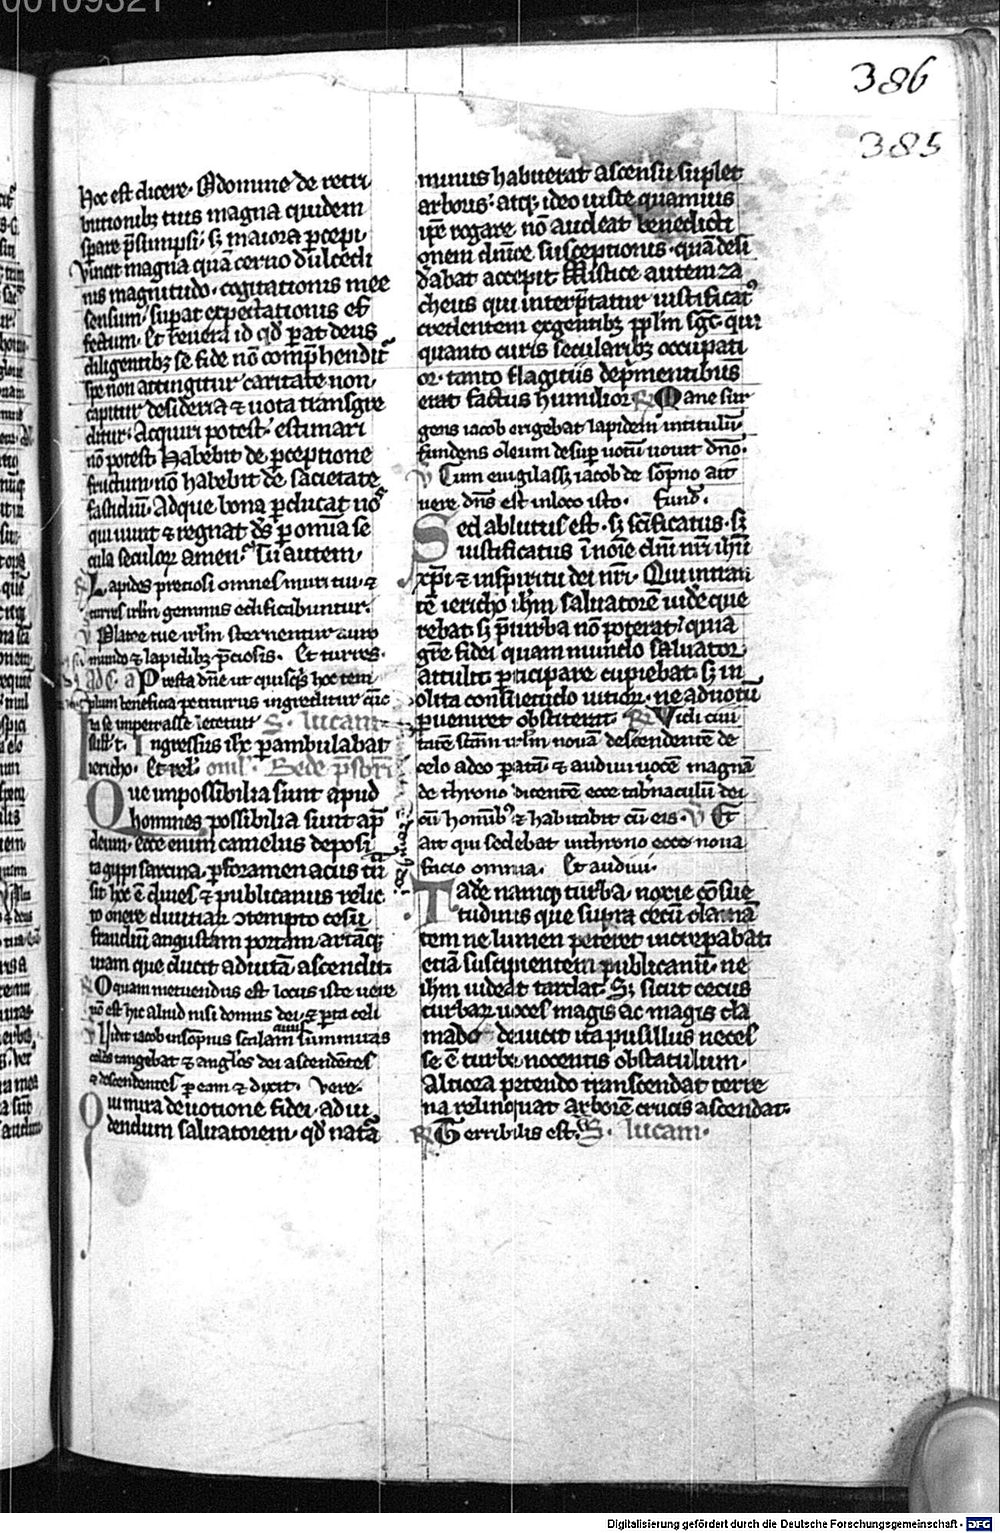 386
385
hoc est dicere. O domine de retri
butionibꝫ tuis magna quidem
sꝑare p̄sumpsi. sꝫ maiora ꝑcepi.
vincit magna quā cerno dulcedi
nis magnitudo. cogitationis mee
sensum. suꝑat expectationis ef
fectum. Et reuera id qd̄ ꝑat deus
diligentibꝫ se fide nō comꝑhendit᷑
spe non attingitur caritate non
capitur desideria ⁊ uota transgre
ditur. Acquiri potest. estimari
nō potest. Habebit de ꝑceptione
fructum. nō habebit de sacietate
fastidiū. Ad que bona ꝑducat nos
qui uiuit ⁊ regnat ds̄ ꝑ omnia se
cula seculoꝝ amen. Tu autem.
℟ Lapides preciosi omnes muri tui ⁊
turres irlm̄ gemmis edificabuntur.
℣ Platee tue irlm̄ sternentur auro
mundo ⁊ lapidibꝫ p̄ciosis. Et turres.
Presta dn̄e ut quisqꝫ hoc tem
plum beneficia petiturus ingreditur cūc
ta se impetrasse letetur S. lucam
In illo t. Ingressus ihc ꝑambulabat
iericho. Et rel. omil. Bede p̄sbr̄i
Que impossibilia sunt apud
homines possibilia sunt apd̄
deum. ecce enim camelus deposi
ta gyppi sarcina. ꝑ foramen acus tn̄
sit hoc ē diues ⁊ publicanus relic
to onere diuitiaꝝ ↄtempto censu
fraudiū angustam portam. artāqꝫ
uiam que ducit ad uitā ascendit.
℟ O quam metuendus est locus iste uere
nō est hic aliud nisi domus dei. ⁊ porta celi
℣ Uidit iacob in sompnis scalam summitas
celos tangebat ⁊ anglos dei ascendētes
⁊ descendentes ꝑ eam ⁊ dixit. Vere.
Qui mira deuotione fidei. ad ui
dendum saluatorem. qd̄ nata
minus habuerat ascensu suplet
arboris. atqꝫ ideo iuste quamuis
ip̄e rogare nō audeat benedicti
onem dn̄ice susceptionis. quā desi
dabat accepit. Mistice autem za
cheus qui interp̄tatur iustificat᷑
credentem ex gentibꝫ ppl̄m sḡc. qui
quanto curis secularibꝫ occupati
or. tanto flagitiis deṗmentibus
erat factus humilior. ℟ Mane sur
gens iacob erigebat lapidem in titulū
fundens oleum desuꝑ uotū uouit dn̄o.
℣ Cum euigilass̄ iacob de sōpno ait
uere dn̄s est in loco isto. Fund̄.
Sed ablutus est. sꝫ sc̄ificatus. sꝫ
iustificatus ī noīe dn̄i nr̄i ihū
xp̄i ⁊ in spiritu dei nr̄i. Qui intran
tē iericho ihm̄ saluatorē uidere que
rebat sꝫ p̄ turba nō poterat. quia
gr̄e fidei quam mundo saluator
attulit ꝑticipare cupiebat. sꝫ in
olita consuetudo uitioꝝ. ne ad uotū
ꝑueniret obstiterat. ℟ Vidi ciui
tatē sc̄am irlm̄ nouā descendentē de
celo a deo ꝑatā ⁊ audiui uocē magnā
de throno dicentē ecce tabn̄aculū dei
cū hominibꝫ ⁊ habitabit cū eis. ℣ Et
ait qui sedebat in throno ecce noua
facio omnia. Et audiui.
Eadē namqꝫ turba. noxie cōsue
tudinis que supra cecū clamā
tem ne lumen peteret increpabat
etiā suscipientem publicanū. ne
ihm̄ uideat tardat. Sꝫ sicut cecus
turbaꝝ uoces magis ac magis cla
mādo deuicit ita pusillus neces
se ē turbe nocentis obstaculum.
Altiora petendo transcendat terre
na relinquat arborē crucis ascendat.
℟ Terribilis est. S. lucam.
Digitalisierung gefördert durch die Deutsche Forschungsgemeinschaft - DFG